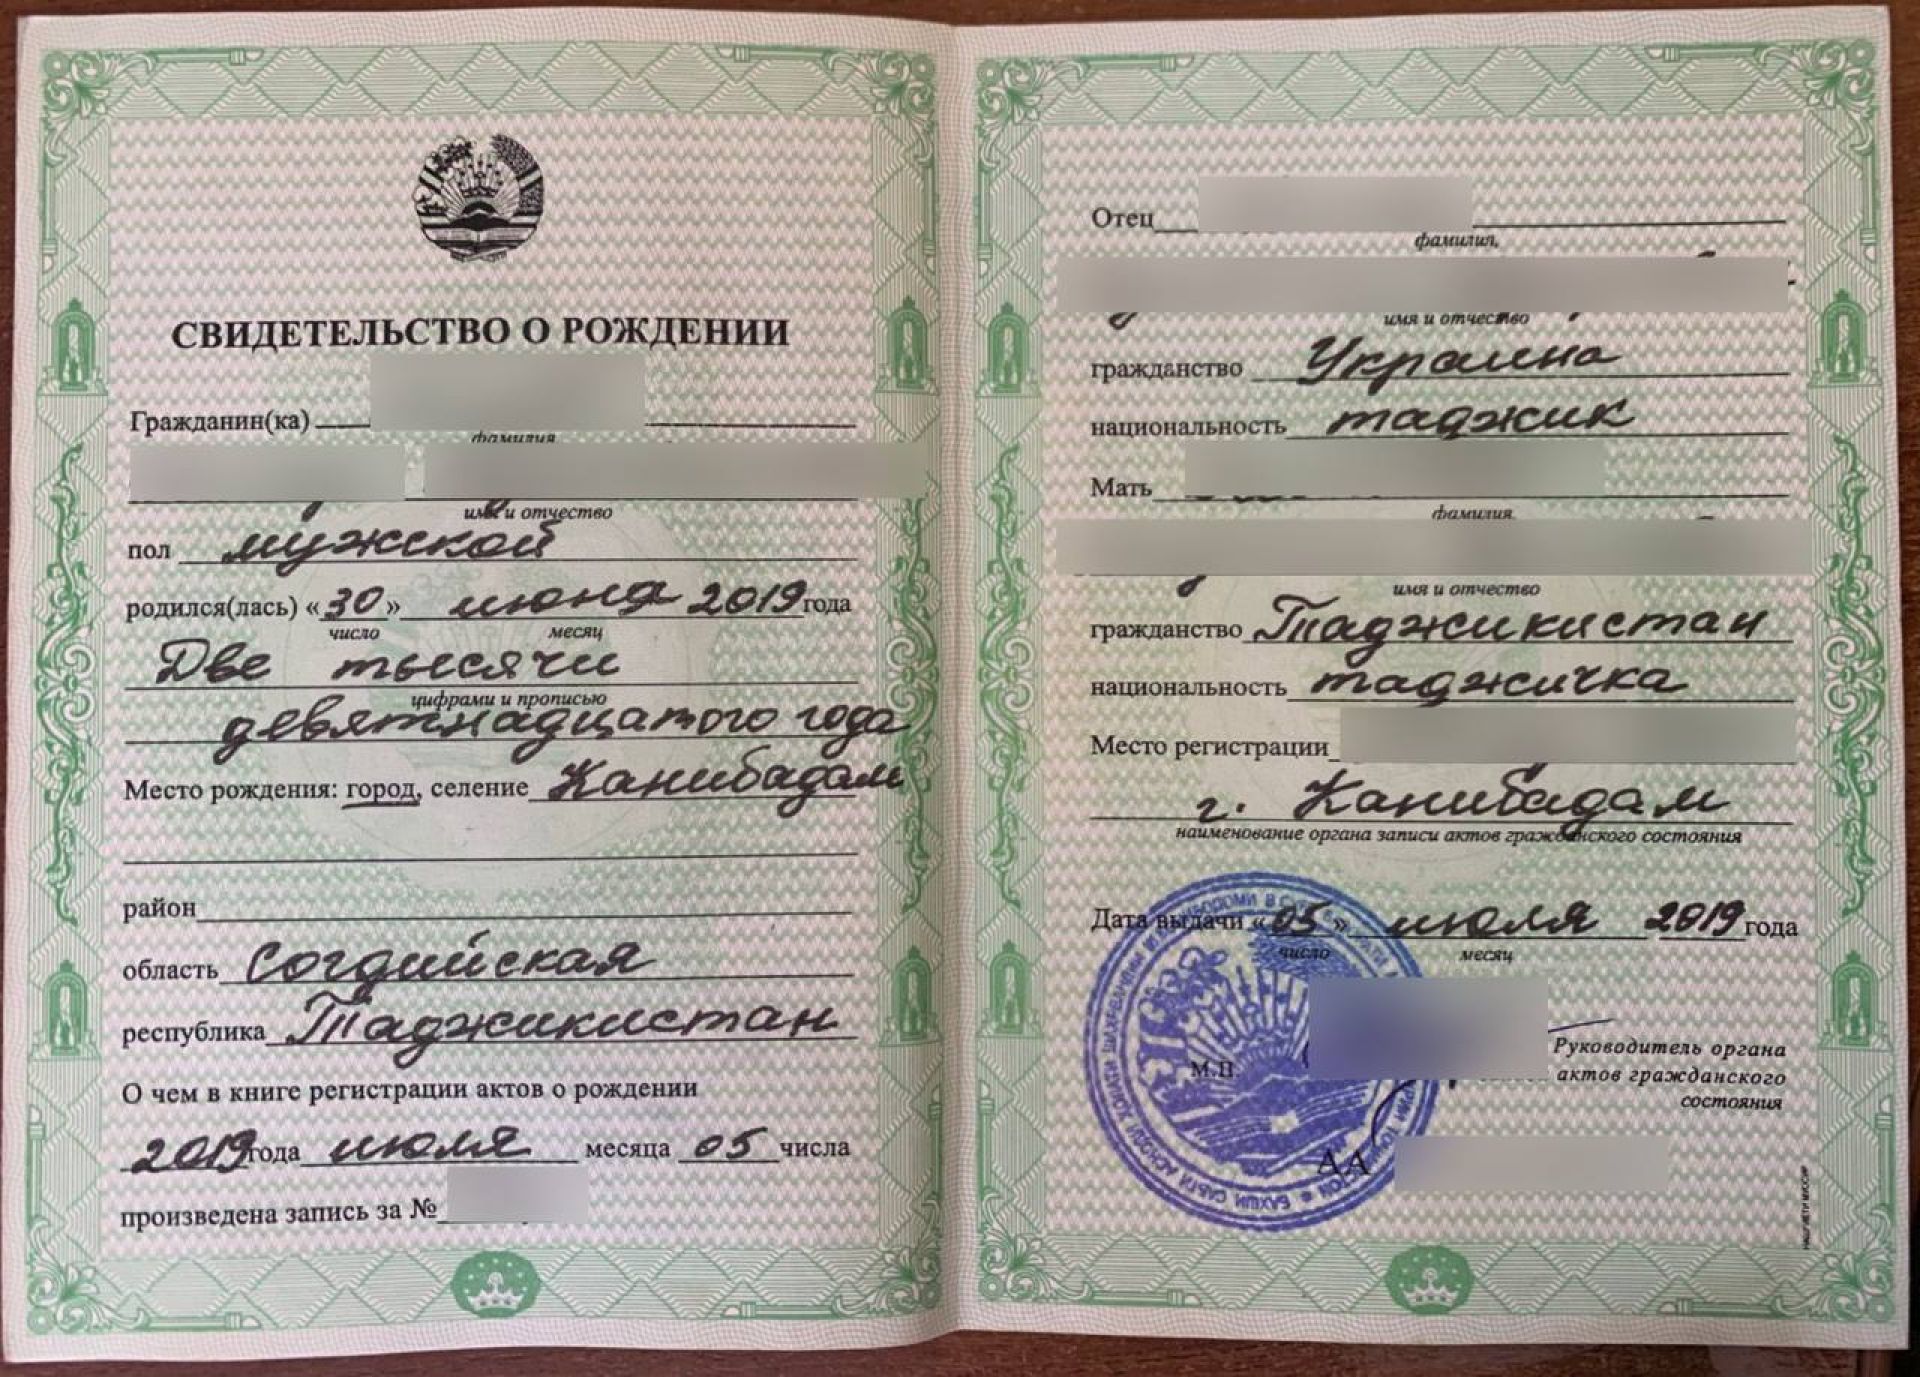 СВИДЕТЕЛЬСТВО О РОЖДЕНИИ
Гражданин(ка)
фамилия
имя и отчество
пол мужской
родился(лась) «30» июня 2019 года
число месяц
Две тысячи
цифрами и прописью
девятнадцатого года
Место рождения: город, селение Канибадам
район
область Согдийская
республика Таджикистан
О чем в книге регистрации актов о рождении
2019 года июля месяца 05 числа
произведена запись за №
Отец
фамилия,
имя и отчество
гражданство Украина
национальность таджик
Мать
фамилия
имя и отчество
гражданство Таджикистан
национальность таджичка
Место регистрации
г. Канибадам
наименование органа записи актов гражданского состояния
Дата выдачи «05» июля 2019 года
число месяц
М.П.
Руководитель органа
актов гражданского
состояния